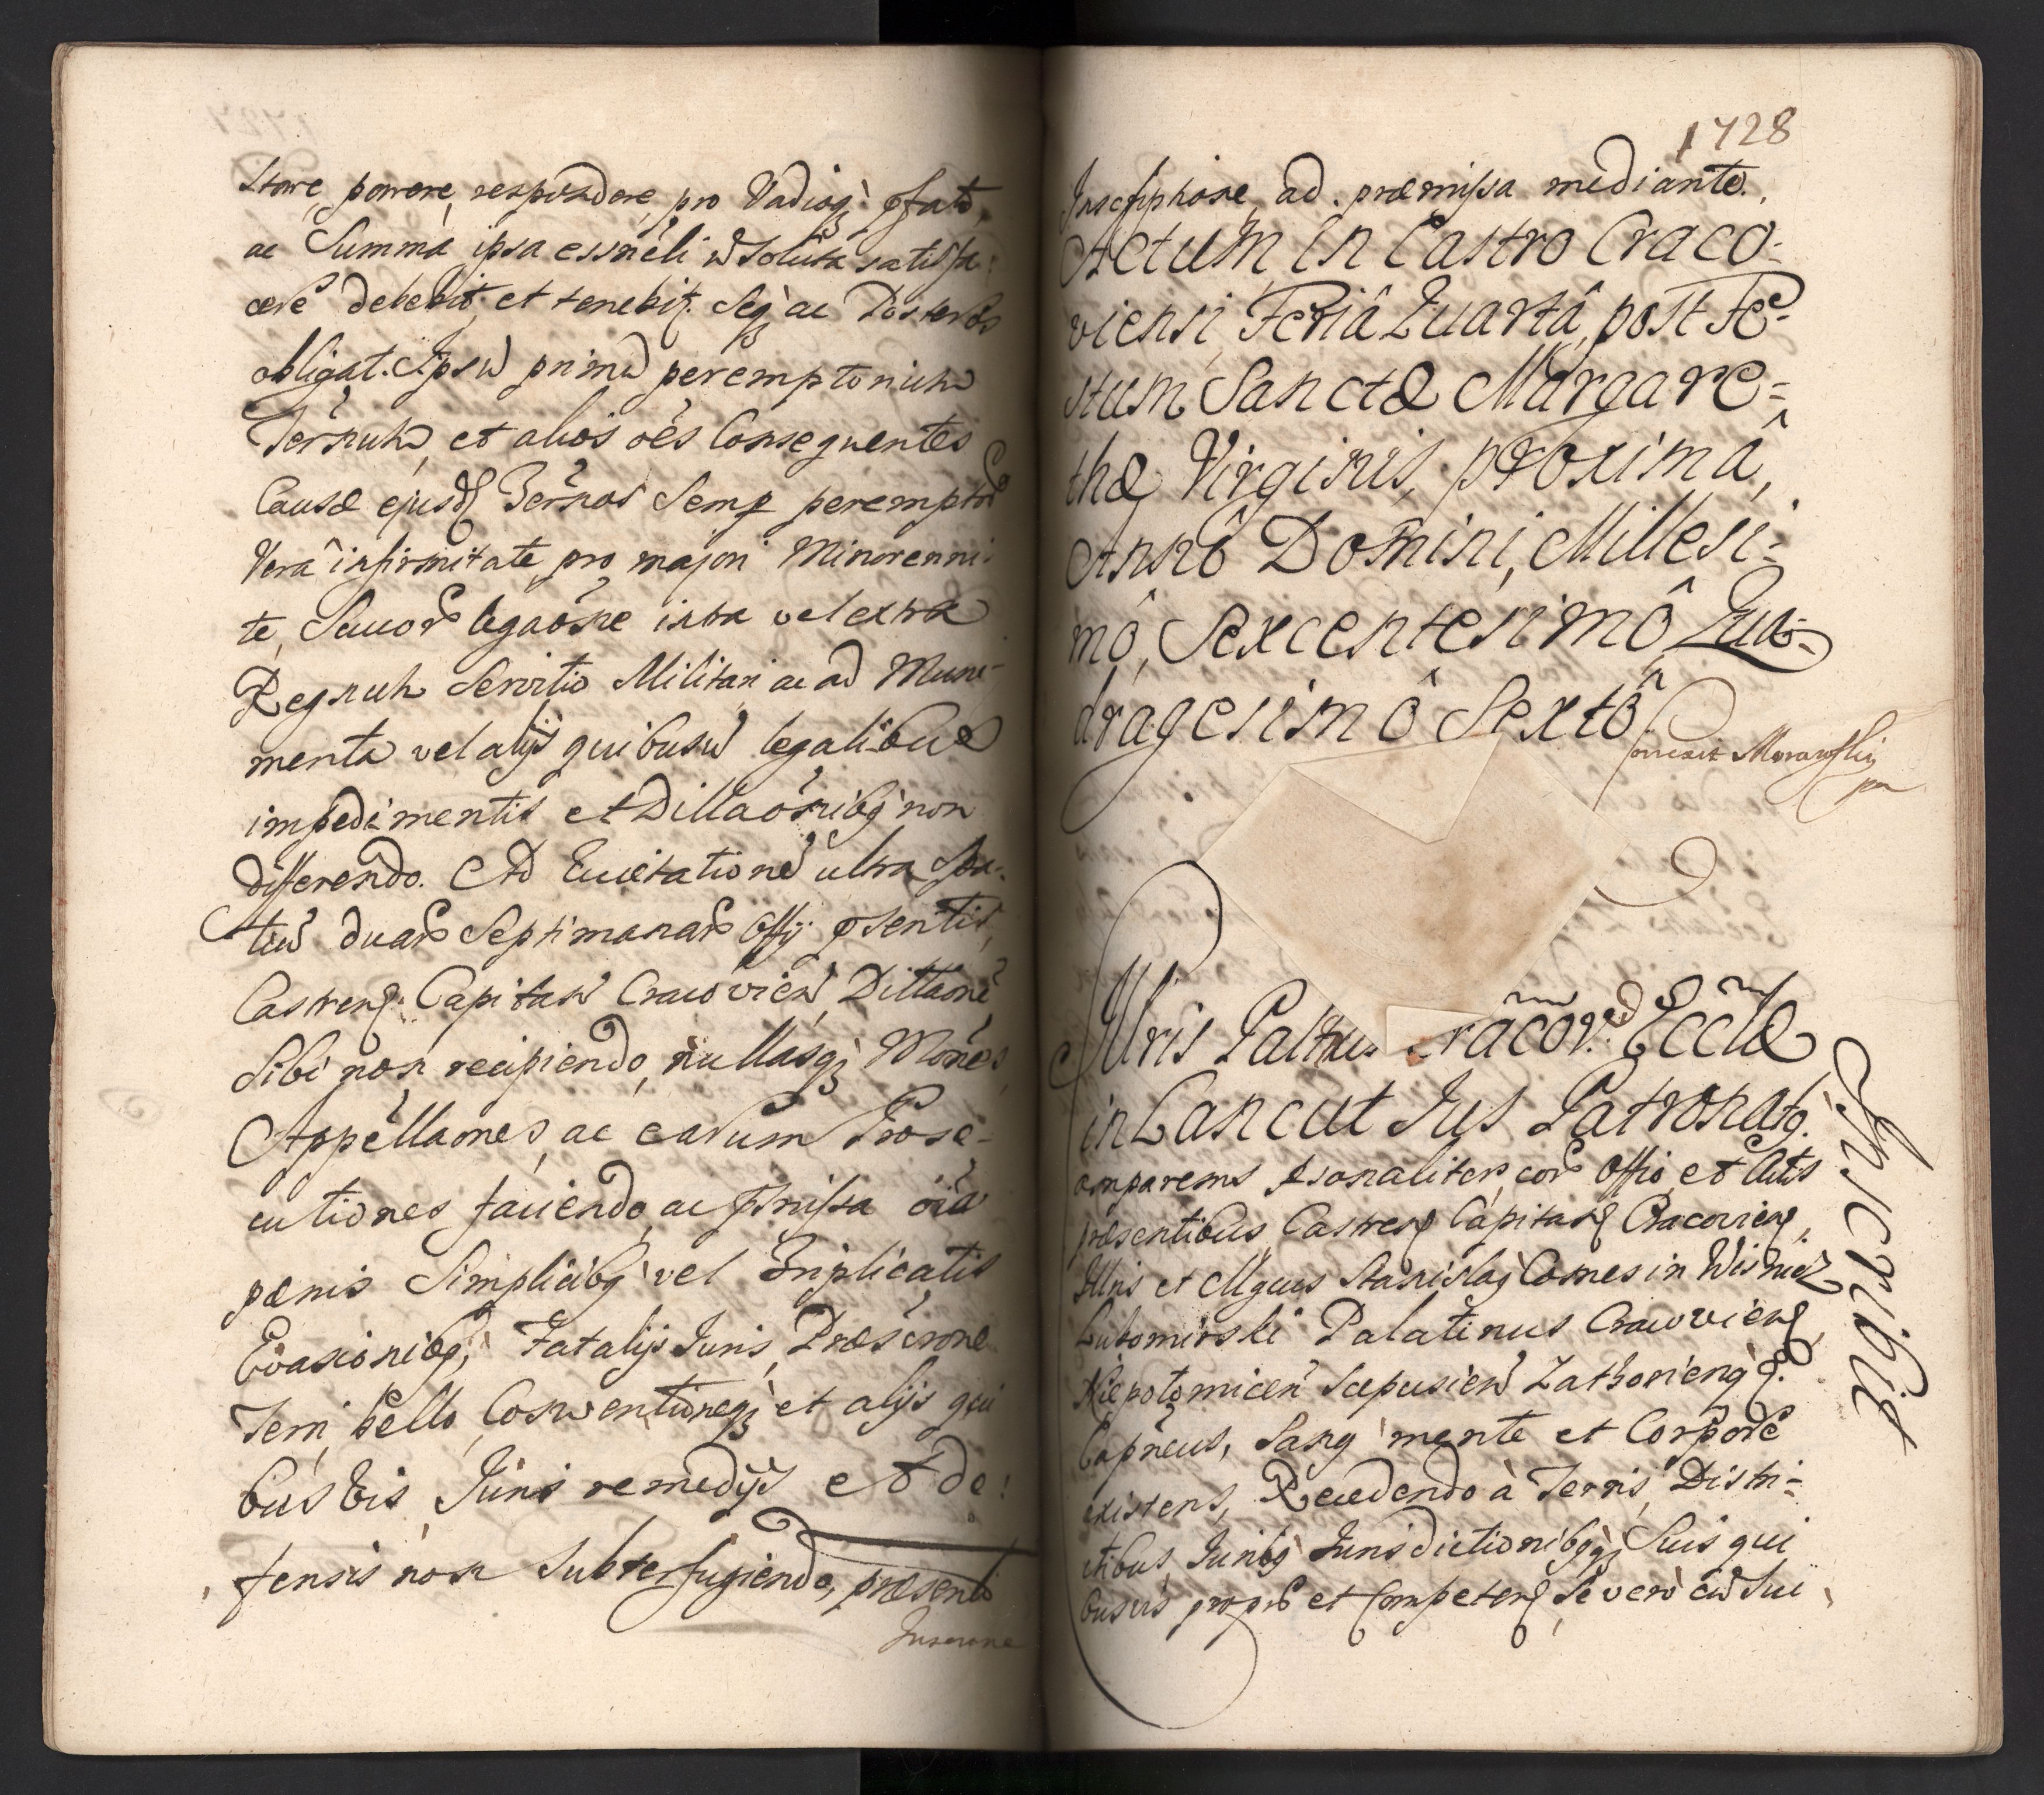 stare, parere, respondere, pro Vadioq; pfato,
ac Summa ipsa essñeli ñ soluta satisfa-
cere debebit, et tenebit. Seq; ac Posteros
obligat. Ipsũ primũ peremptorium
Terñum, et alios oẽs Consequentes
Causæ ejusd. Terños Semp perempto
Verâ infirmitate, pro majori Minorenni-
te, legaõne intra vel extra
Regnum Servitio Militari ac ad Muni-
menta vel alijs quibusũ legalibus
impedimentis et Dillaõnibq non
differendo. Ad Euictationẽ ultra spa-
tiũ duar Septimanar Offij psentis,
Castren. Capitan Cracovieñ, Dillaõnẽ
Sibi non recipiendo, nullasq; Moñes,
Appellaõnes, ac earum Prose-
cutiones faciendo, ac pmissa oĩa
pænis Simplicibq vel Triplicatis
Evasionibq, Fatalijs Juris, Præscrõne
Terri, bello, Conventioneq; et alijs qui
busvis Juris remedijs et de-
fensis non subterfugiendo, præsenti
Inscrõne
1728
Inscriptione ad præmissa mediante.
Actum in Castro Craco-
viensi, Feriâ Quartâ, post Fe-
stum Sanctæ Margare-
thæ Virginis, proximâ,
Annô Domini, Millesi-
mô, Sexcentesimô Qua-
dragesimô Sextô
Correxit Morawsky
Illris Cracov. Eccle
in Lancut Jus Patronatq.
Comparens psonaliter, cor Offo et Actis
præsentibus Castren Capitan Cracovien,
Illris et Mgcus Stanislaq Comes in Wisnicz
Lubomirski Palatinus Cracovien,
Niepolomiceñ Scepusieñ Zathorienq; &.
Capñeus, Sanq mente et Corpore
existens, Recedendo à Terris Distri-
ctibus, Juribq Jurisdictionibqq; Suis qui
busvis propris et Competen, Se vero cũ Sui
Inscribit